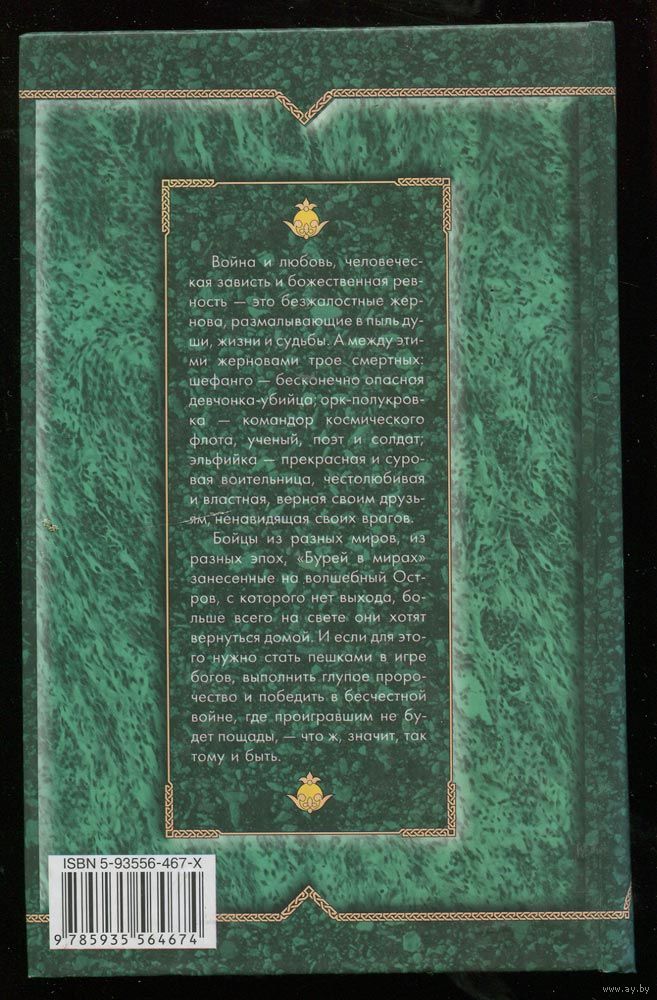 Война и любовь, человечес-
кая зависть и божественная рев-
ность — это безжалостные жер-
нова, размалывающие в пыль ду-
ши, жизни и судьбы. А между эти-
ми жерновами трое смертных:
шефанго — бесконечно опасная
девчонка-убийца; орк-полукров-
ка — командор космического
флота, ученый, поэт и солдат;
эльфийка — прекрасная и суро-
вая воительница, честолюбивая
и властная, верная своим друзь-
ям, ненавидящая своих врагов.
Бойцы из разных миров, из
разных эпох, «Бурей в мирах»
занесенные на волшебный Ост-
ров, с которого нет выхода, бо-
льше всего на свете они хотят
вернуться домой. И если для это-
го нужно стать пешками в игре
богов, выполнить глупое проро-
чество и победить в бесчестной
войне, где проигравшим не бу-
дет пощады, — что ж, значит, так
тому и быть.
ISBN 5-93556-467-X
9 785935 564674
www.ay.by